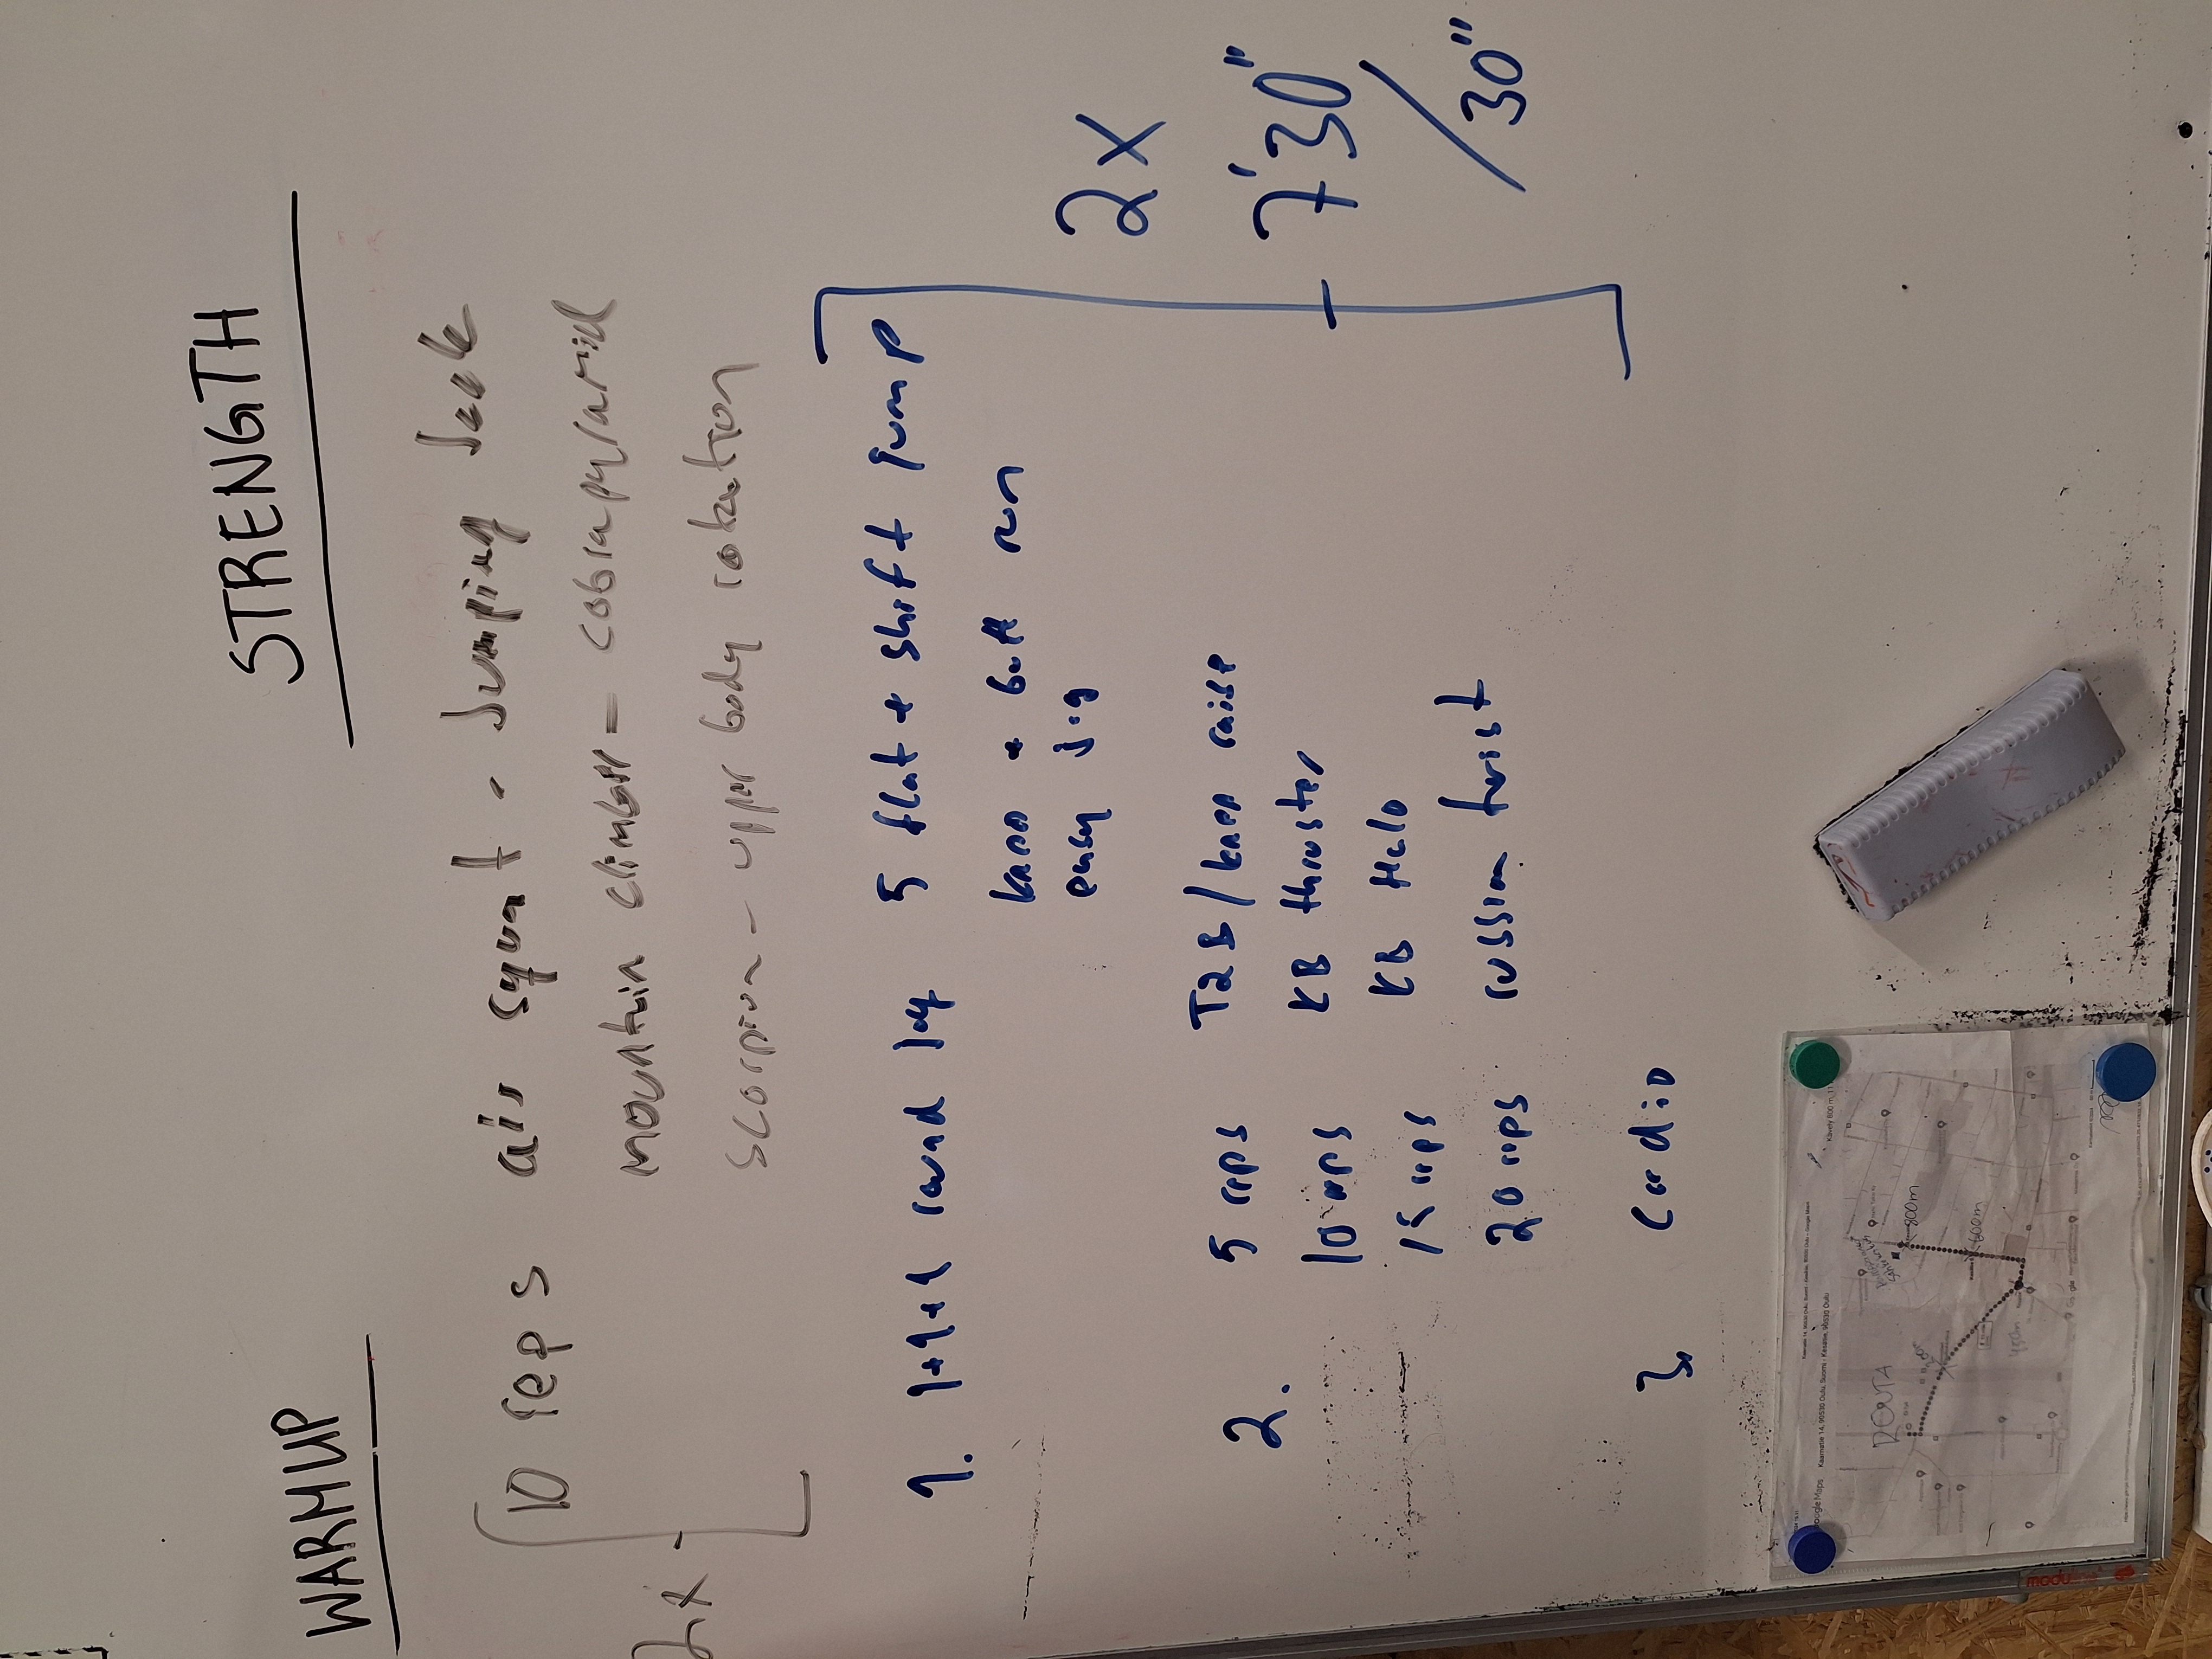 WARMUP STRENGTH
10 reps air squat - Jumping Jack
2x
mountain climber - cobra pyramid
scorpion - upper body rotation
1. 1+1+1 round leg 5 flat + shift jump
knee + butt run
easy jog
2. 5 reps T2B/knee raise
10 reps KB thruster
15 reps KB Halo
20 reps russian twist
3 Cardio
2X
7'30"
/30"
ROUTA
800m
600m
Google Maps